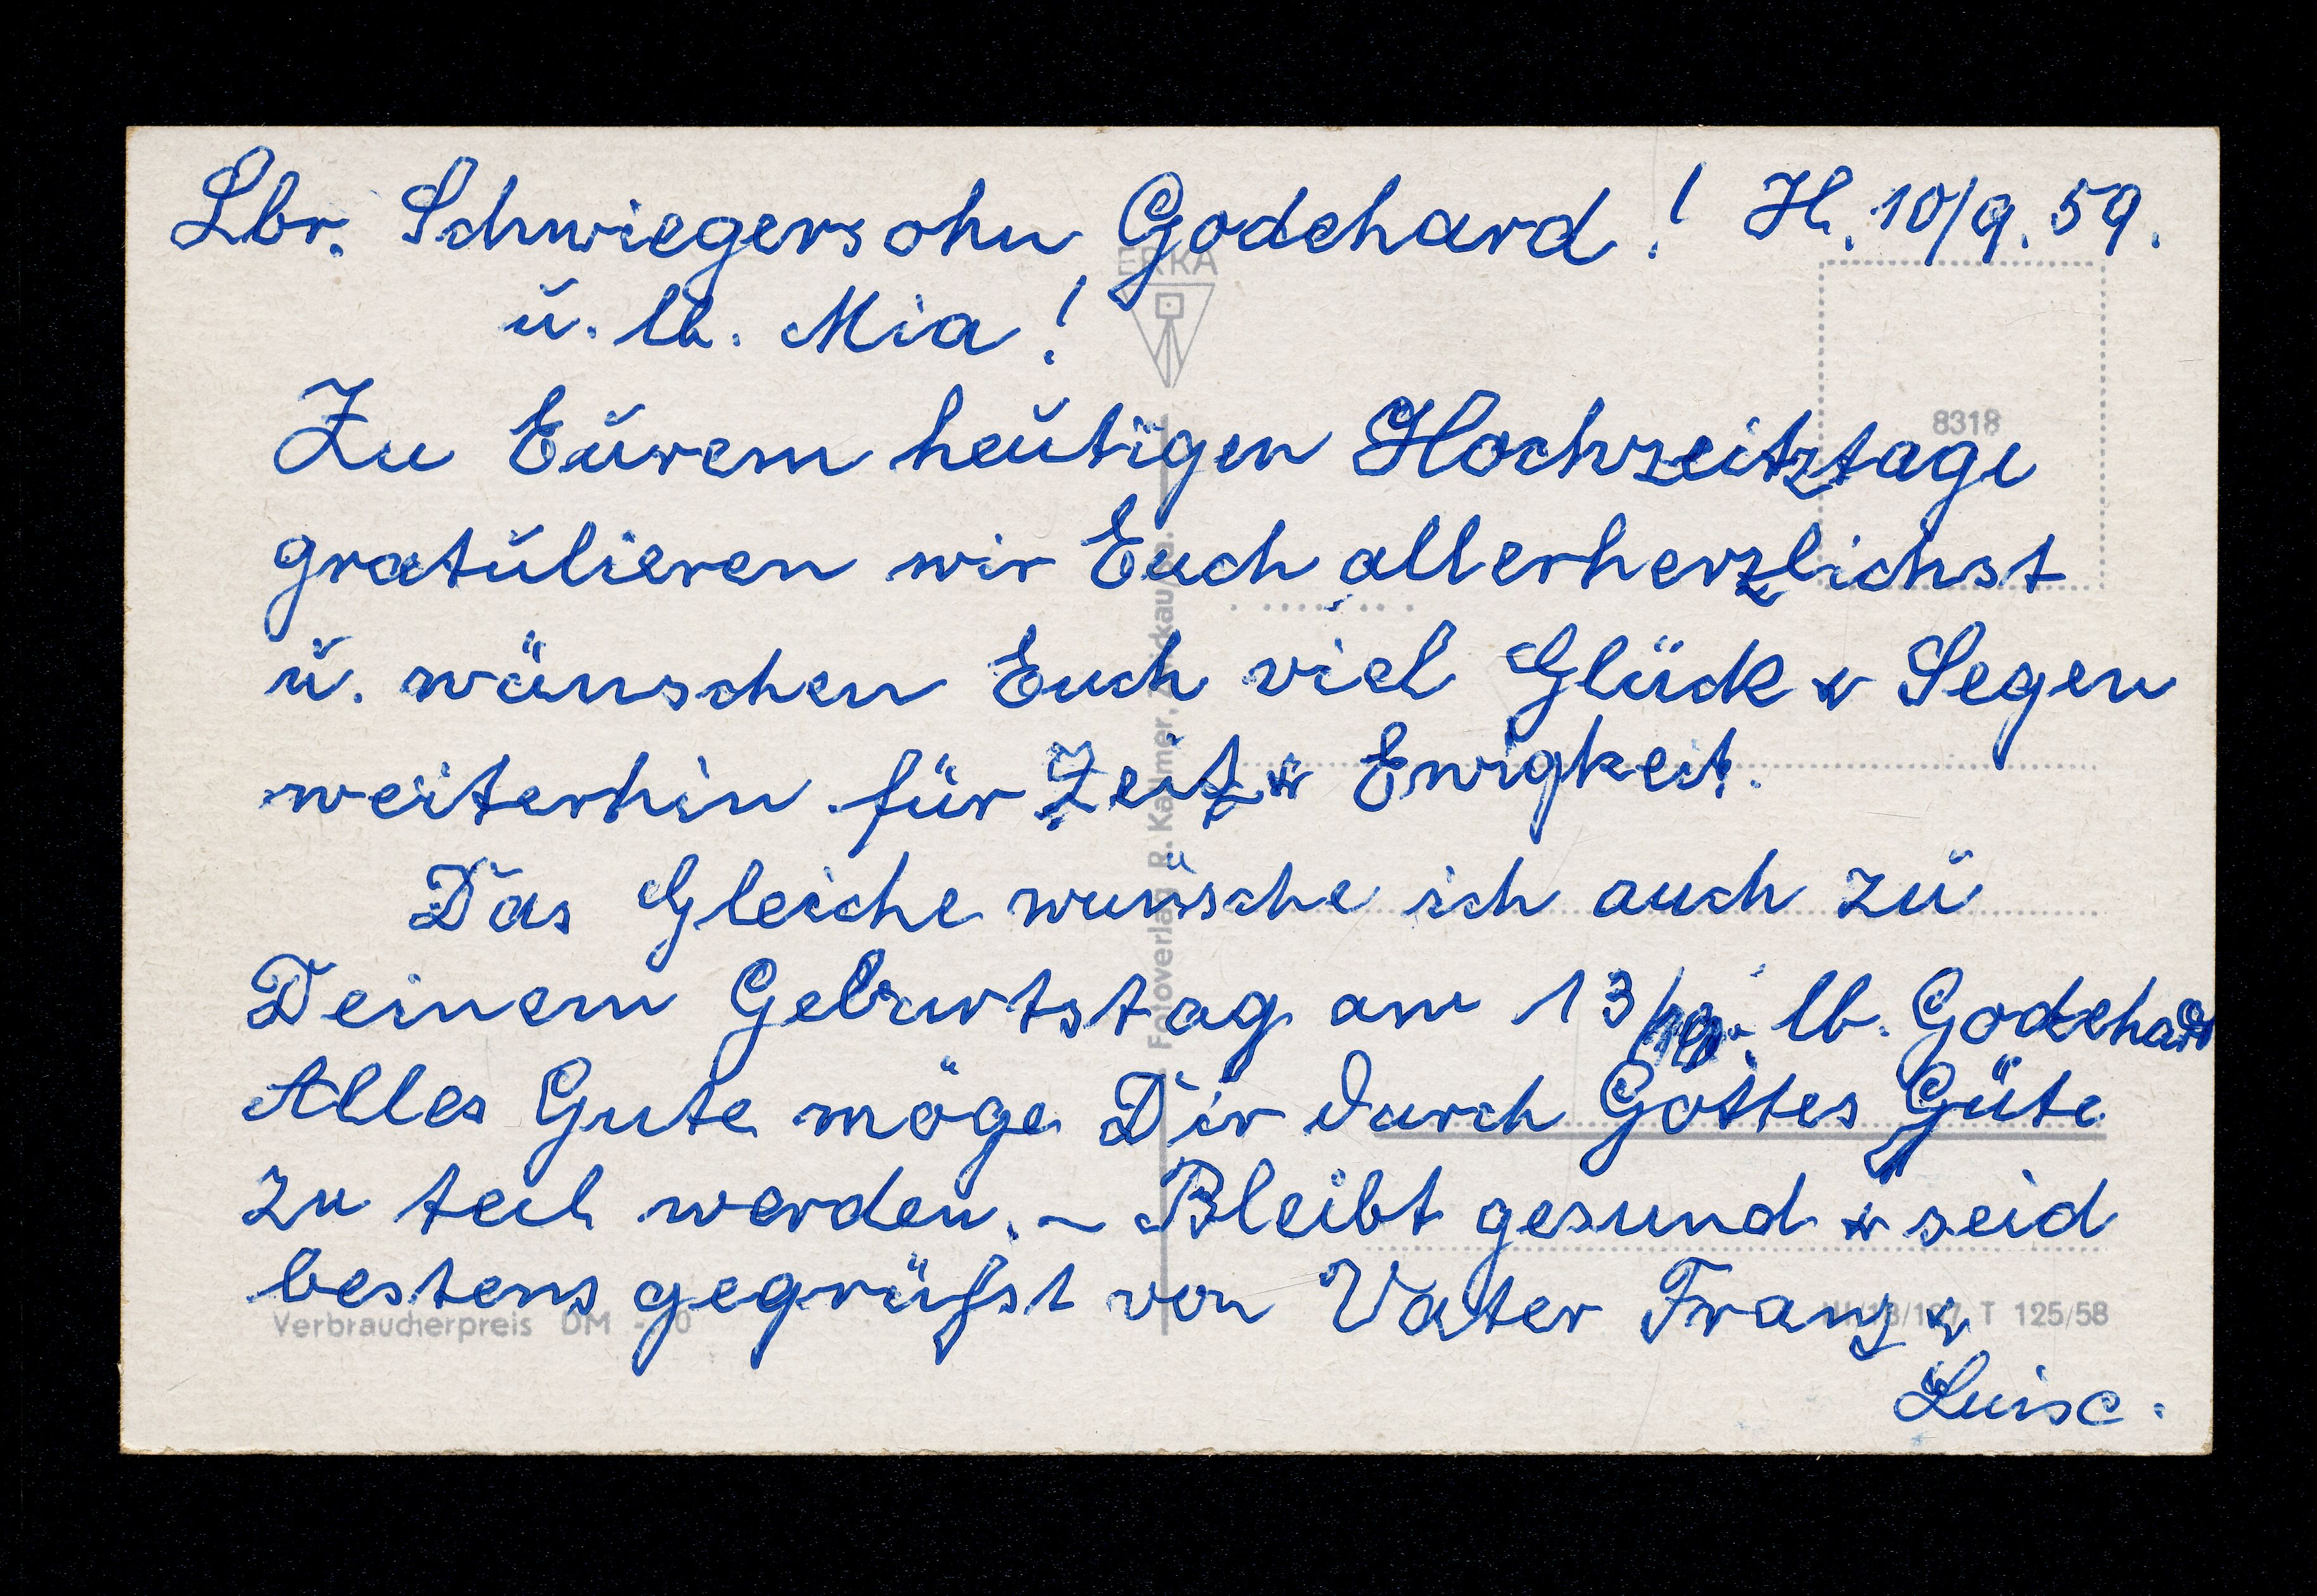 Lbr. Schwiegersohn Godehard! H. 10/9. 59.
u. lb. Mia!
Zu Eurem heutigen Hochzeitztage
gratulieren wir Euch allerherzlichst
u. wünschen Euch viel Glück & Segen
weiterhin für Zeit & Ewigkeit.
Das Gleiche wünsche ich auch zu
Deinem Geburtstag am 13/ lb. Godehard
Alles Gute möge Dir durch Gottes Güte
zu teil werden. – Bleibt gesund & seid
bestens gegrüßst von Vater Franz &
Luise.
ERKA
8318
Fotoverlag R. Kallmer,
Verbraucherpreis DM
T 125/58